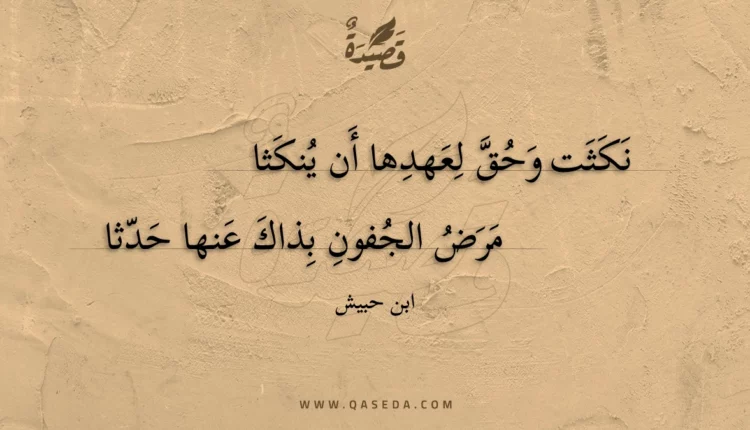 قَصِيْدَةٌ
نَكَثَت وَحُقَّ لِعَهدِها أَن يُنكَثا
مَرَضُ الجُفونِ بِذاكَ عَنها حَدّثا
ابن حبيش
WWW.QASEDA.COM